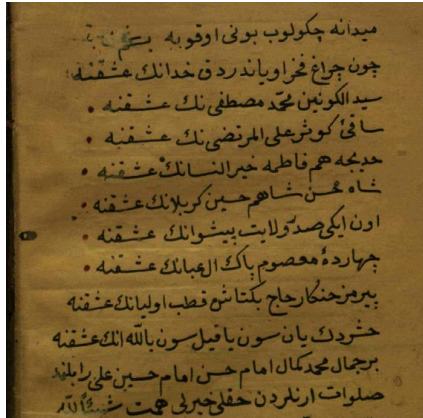 ميدانه چكولوب بونى اوقويه
چون چراغ فخر اوياندردق خدانك عشقنه
سيد الكونين محمد مصطفى نك عشقنه
ساقئ كوثر على المرتضى نك عشقنه
خديجه هم فاطمه خير النسانك عشقنه
شاه حسن شاه هم حسين كربلانك عشقنه
اون ايكى صدر ولايت پيشوانك عشقنه
چهارده معصوم پاك ال عبانك عشقنه
پيرمز خنكار حاج بكتاش قطب اوليانك عشقنه
حشردك يان سون ياقيل سون بالله انك عشقنه
بر جمال محمد كمال امام حسن امام حسين على را بلند
صلوات ارنلردن حقلى خيرلى همت